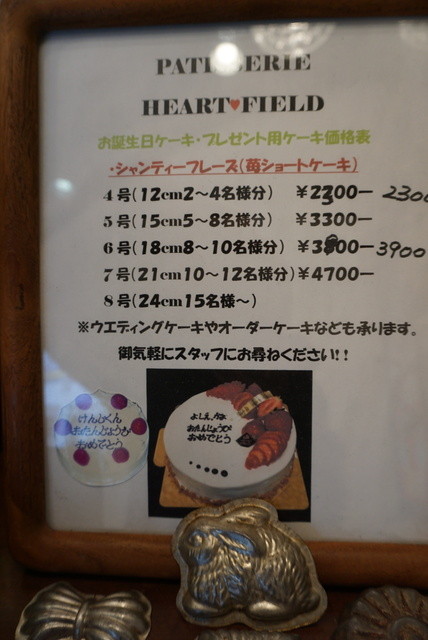 PATISSERIE
HEART♥FIELD
お誕生日ケーキ・プレゼント用ケーキ価格表
・シャンティーフレーズ(苺ショートケーキ)
4号(12cm2～4名様分) ¥2300ー 2300
5号(15cm5～8名様分) ¥3300ー
6号(18cm8～10名様分) ¥3900ー 3900
7号(21cm10～12名様分) ¥4700ー
8号(24cm15名様～)
※ウエディングケーキやオーダーケーキなども承ります。
御気軽にスタッフにお尋ねください!!
けんとくん
おたんじょうび
おめでとう
おたんじょうび
おめでとう